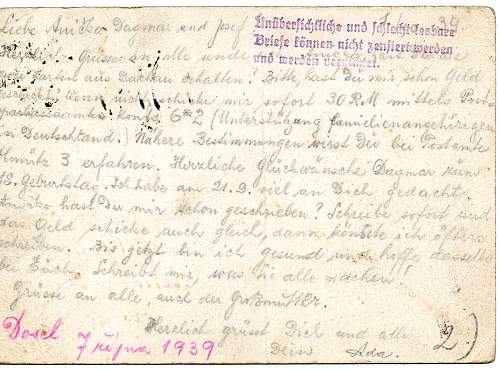 Liebe Anitko Dagmar und Josef
39
Unübersichtliche und schlecht lesbare
Briefe können nicht zensiert werden
und werden vernichtet.
Herzliche Grüsse an alle
Karten aus Dachau erhalten? Bitte, hast Du mir schon Geld
geschickt? Wenn nicht, schicke mir sofort 30 RM mittels Post-
sparkassaamtes konto 6*2 (Unterstützung familienangehörigen
in Deutschland.) Nähere Bestimmungen wirst Du bei Postamte
Olmütz 3 erfahren. Herzliche Glückwünsche Dagmar zum
18. Geburtstag. Ich habe am 21.9. viel an Dich gedacht.
Anitko hast Du mir schon geschrieben? Schreibe sofort und
das Geld schicke auch gleich, dann könnte ich öfters
schreiben. Bis jetzt bin ich gesund und hoffe dasselbe
bei Euch. Schreibt mir, was Sie alle machen!
Grüsse an alle, auch der Großmutter.
Herzlich grüsst Dich und alle
Dein Ada.
2)
Dosel 7 října 1939